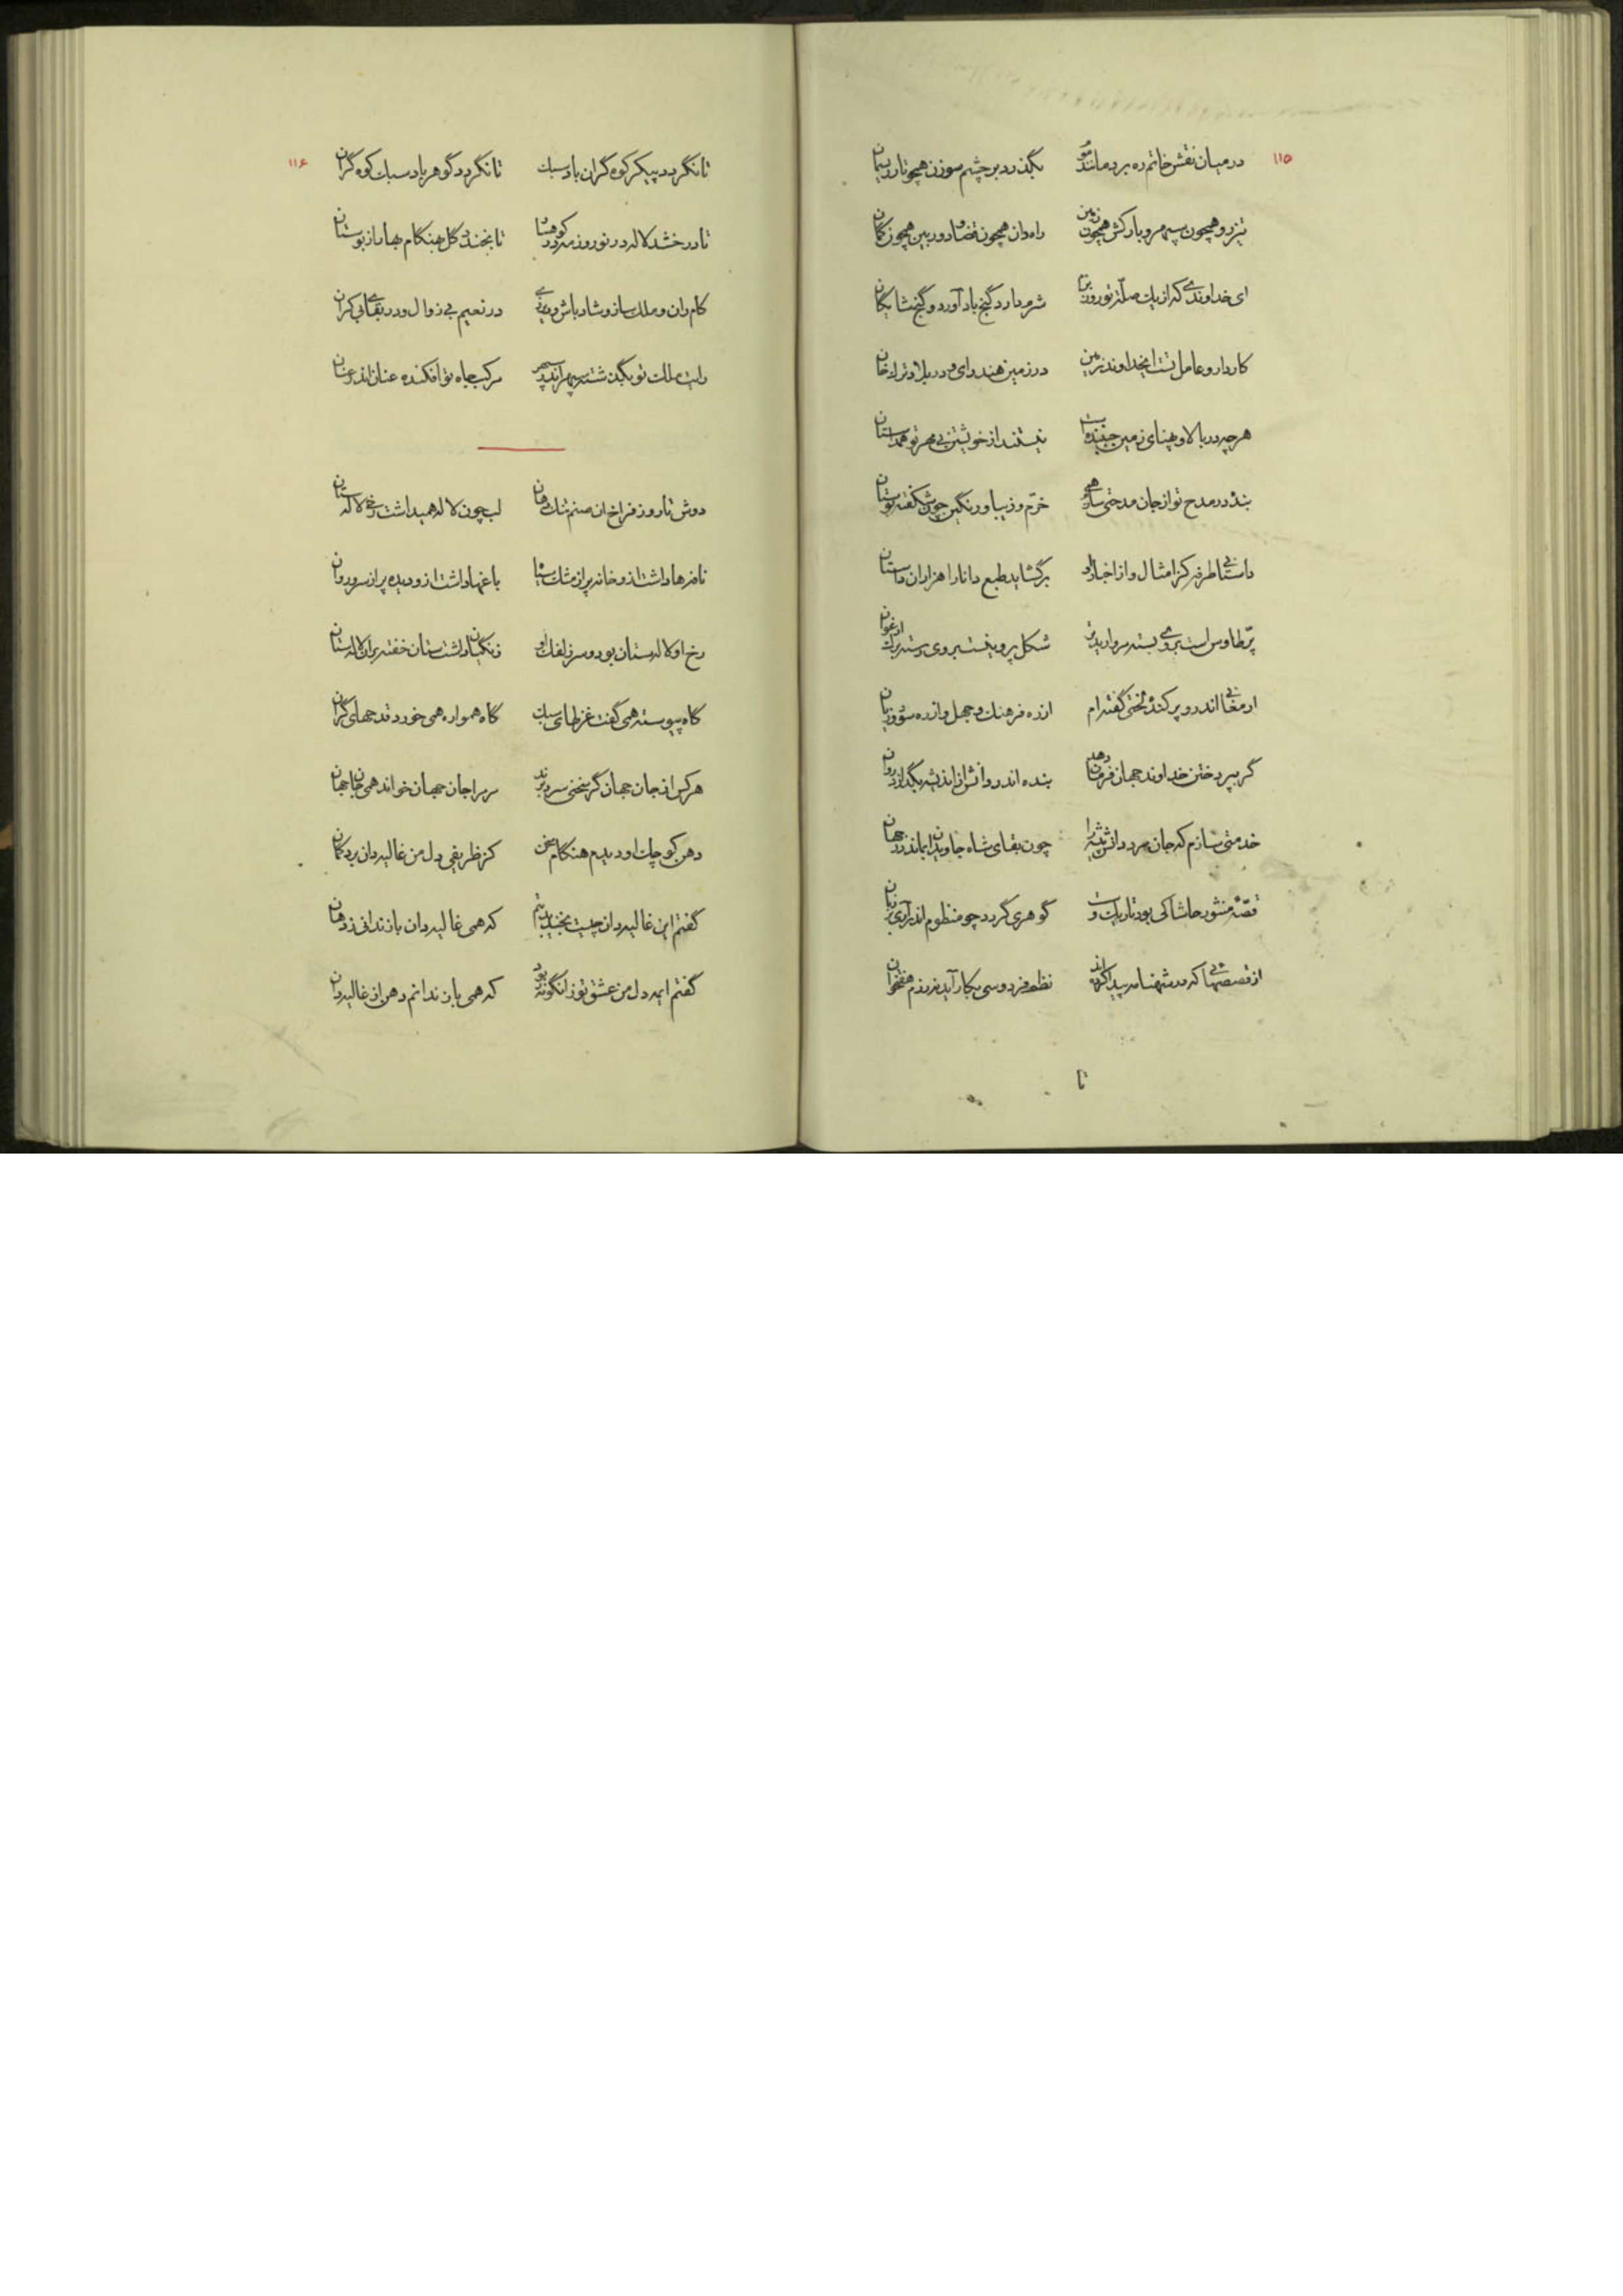 ۱۱۵
در میان نقش خاتم ره برد مانند مور بگذرد بر چشم سوزن همچو تار ریسمان
تیز رو همچون سپهر و بارکش همچون زمین راه دان همچون قضا و دوربین همچون کمان
ای خداوندی که از یک صلّهٔ نوروز تو شرم دارد گنج باد آورد و گنج شایگان
کاردار و عامل تست ایخداوند زمین در زمین هند رای و در
هرچه در بالا و پهنای زمین جنبنده است نیستند از خویشتن بی مهر تو همداستان
بنده در مدح تو از جان مدحتی سازد همی خرّم و زیبا و رنگین چون شکفته بوستان
داستانی طرفه کز امثال و از اخبار او برگشاید طبع دانا را هزاران داستان
پرّ طاوس است بروی بسته مروارید تر شکل پروینست بروی رسته برک ارغوان
ارمغانی اندرو پرکنده لختی گفته ام از ره فرهنک و جهل و از ره سود و زیان
گر بپردختن خداوند جهان فرمان دهد بنده اندر وانش از اندیشه بگدازد روان
خدمتی سازم که جان مرد دانش پیشه را چون بقای شاه جاویدان بماند در جهان
قصّهٔ منثور حاشاکی بود تاریک و گوهری گردد چو منظوم اندر آری بر زبان
از قصصهائی که در شهنامه پیدا کرده اند نظم فردوسی بکار آید نه رزم هفتخوان
تا
۱۱۶
تا نگردد پیکر کوه گران باد سبک تا نگردد گوهر باد سبک کوه گران
تا درخشد لاله در نوروز مه در کوهسار تا بخندد گل بهنگام بهار از بوستان
کام ران و ملک ساز و شاد باش و دیر زی در نعیم بی زوال و در بقای بی کران
رایت ملک تو بگذشته سپهر اندر سپهر مرکب جاه تو افکنده عنان اندر عنان
دوش تا روز فراخ ان صنم تنک دهان لب چون لاله همیداشت رخ لاله ستان
نافه‌ها داشت ازو خانه پر از مشک سیا باغها داشت ازو دیده پر از سرو روان
رخ او لاله ستان بود و سر زلفک او زنگیان داشت ستان خفته بران لاله ستان
گاه پیوسته همی گفت غزلهای سبک گاه همواره همی خورد قدحهای گران
هر کس از جان جهان گر سخنی سرد برند مر مرا جان جهان خواند همی جان جهان
دهن کوچک او دیدم هنکام سخن کز ظریفی دل من غالیه دان برد کمان
گفتم این غالیه دان چیست بخندید بتم که همی غالیه دان باز ندانی ز دهان
گفتم ایمه دل من عشق تو زانگونه بود که همی باز ندانم دهن از غالیه دان